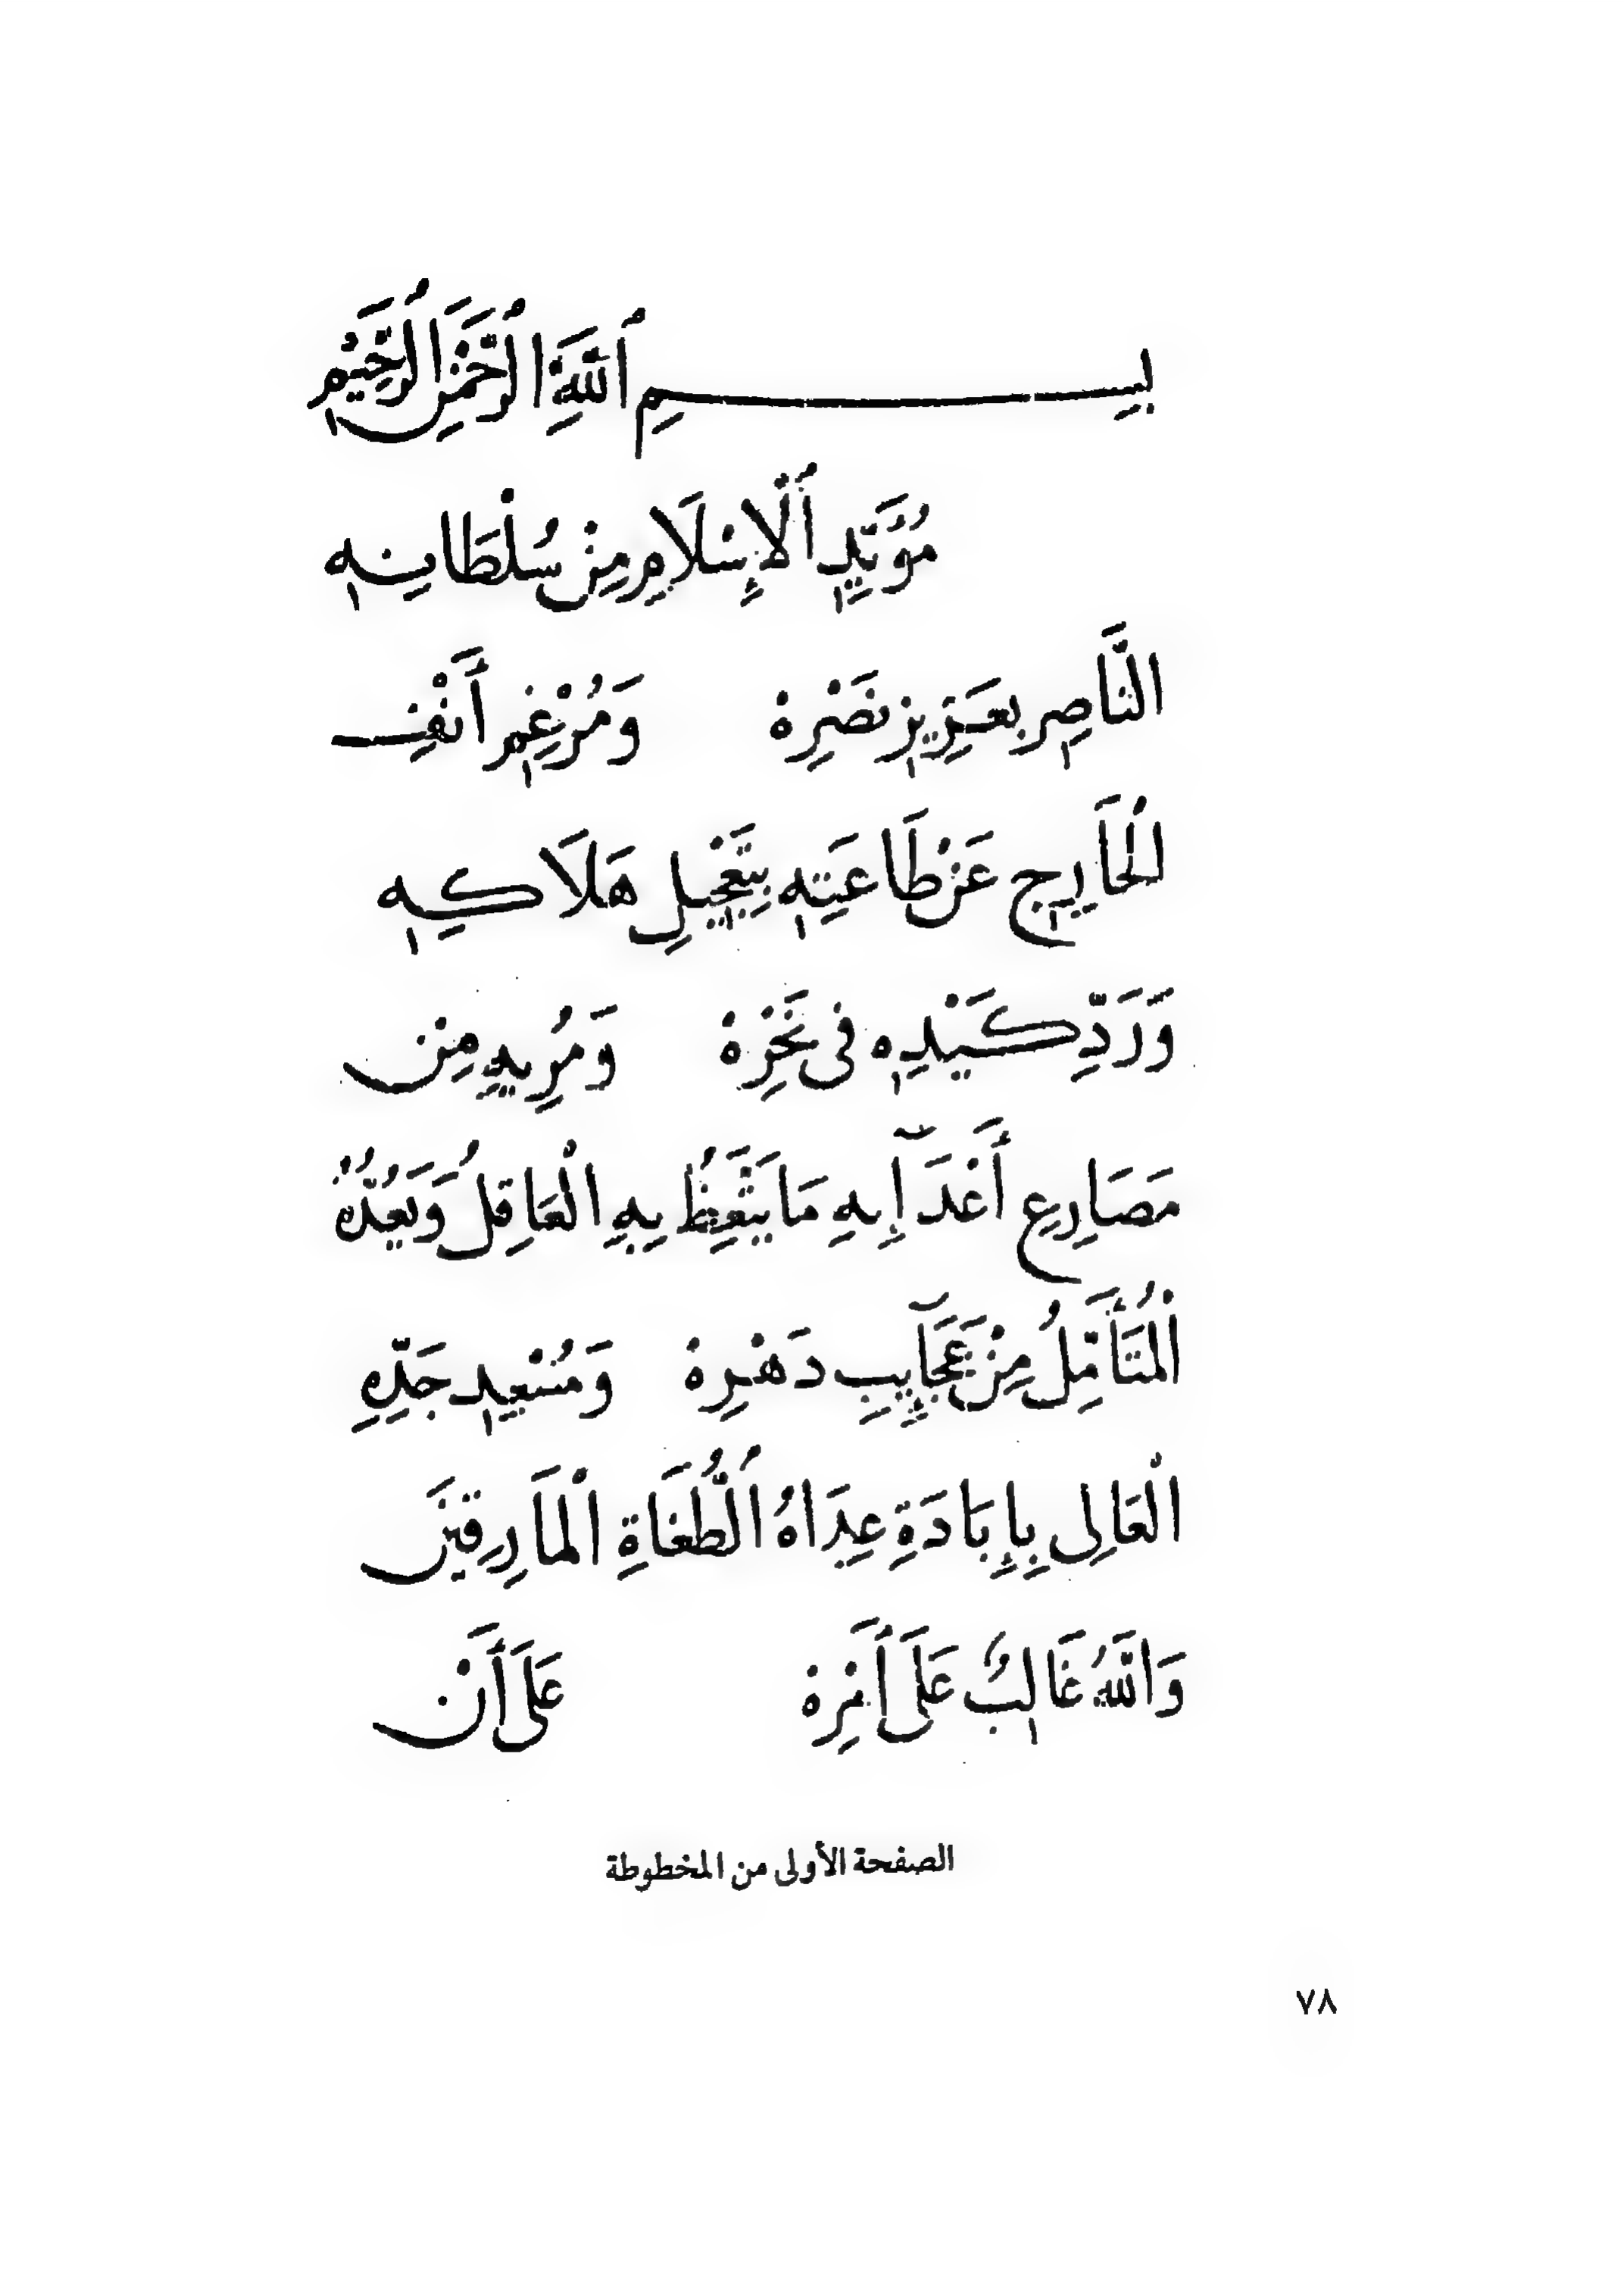 بِسْمِ ٱللَّهِ الرَّحْمَنِ الرَّحِيمِ
مُؤَيِّدِ ٱلْإِسْلَامِ مِنْ سُلْطَانِهِ
النَّاصِرِ بعَزِيزِ نَصْرِهْ وَمُرْغِمِ أَنْفِ
الْخَارِجِ عَنْ طَاعَتِهِ بِتَعْجِيلِ هَلَاكِهِ
وَرَدِّ كَيْدِهِ فِى نَحْرِهْ وَمُرِيهِ مِن
مَصَارِعِ أَعْدَآإِهِ مَا يَتَّعِظُ بِهِ الْعَاقِلُ وَيَعُدُّهُ
الْمُتَأَمِّلُ مِنْ عَجَآيِبِ دَهْرِهْ وَمُسْعِدِ جَدِّهِ
الْعَالِى بِإِبَادَةِ عِدَاهُ ٱلطُّغَاةِ الْمَارِقِينَ
وَاللَّهُ غَالِبٌ عَلَى أَمْرِهْ عَلَى أَنْ
الصفحة الأولى من المخطوطة
٧٨